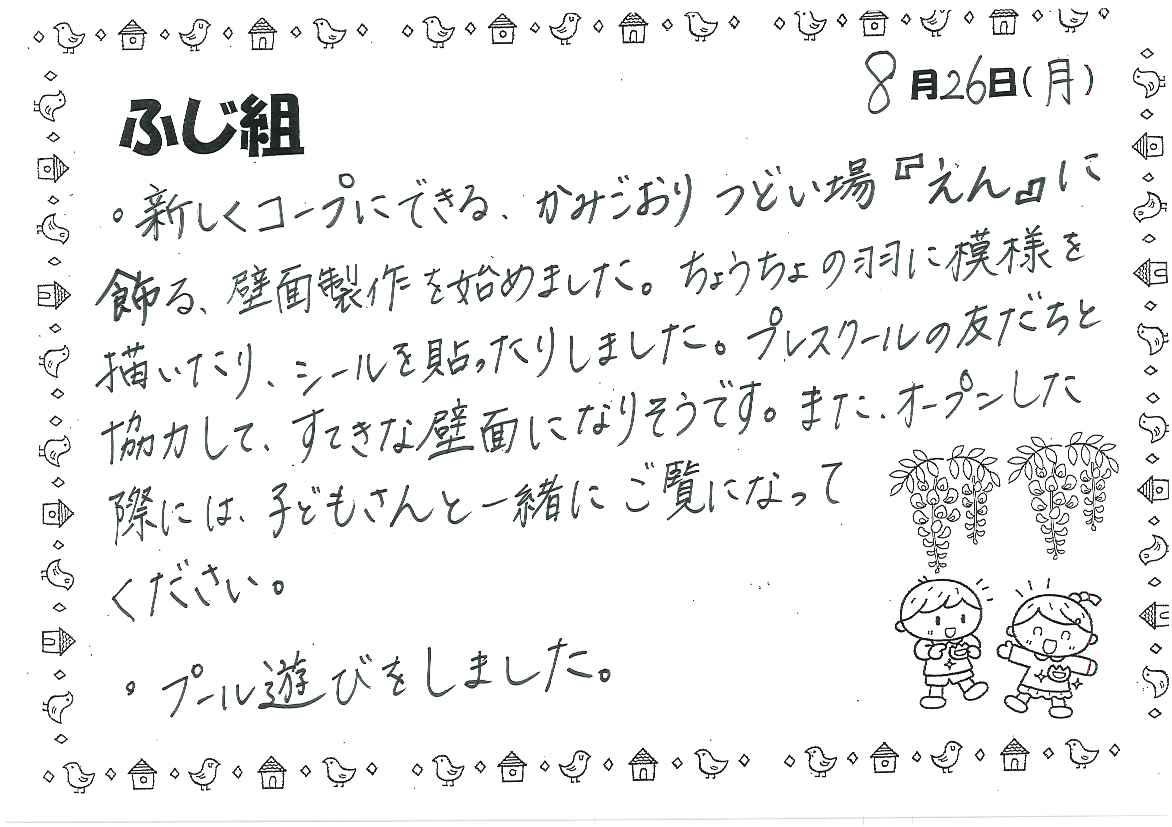 8月26日(月)
ふじ組
・新しくコープにできる、かみごおりつどい場『えん』に
飾る、壁面製作を始めました。ちょうちょの羽に模様を
描いたり、シールを貼ったりしました。プレスクールの友だちと
協力して、すてきな壁面になりそうです。また、オープンした
際には、子どもさんと一緒にご覧になって
ください。
・プール遊びをしました。